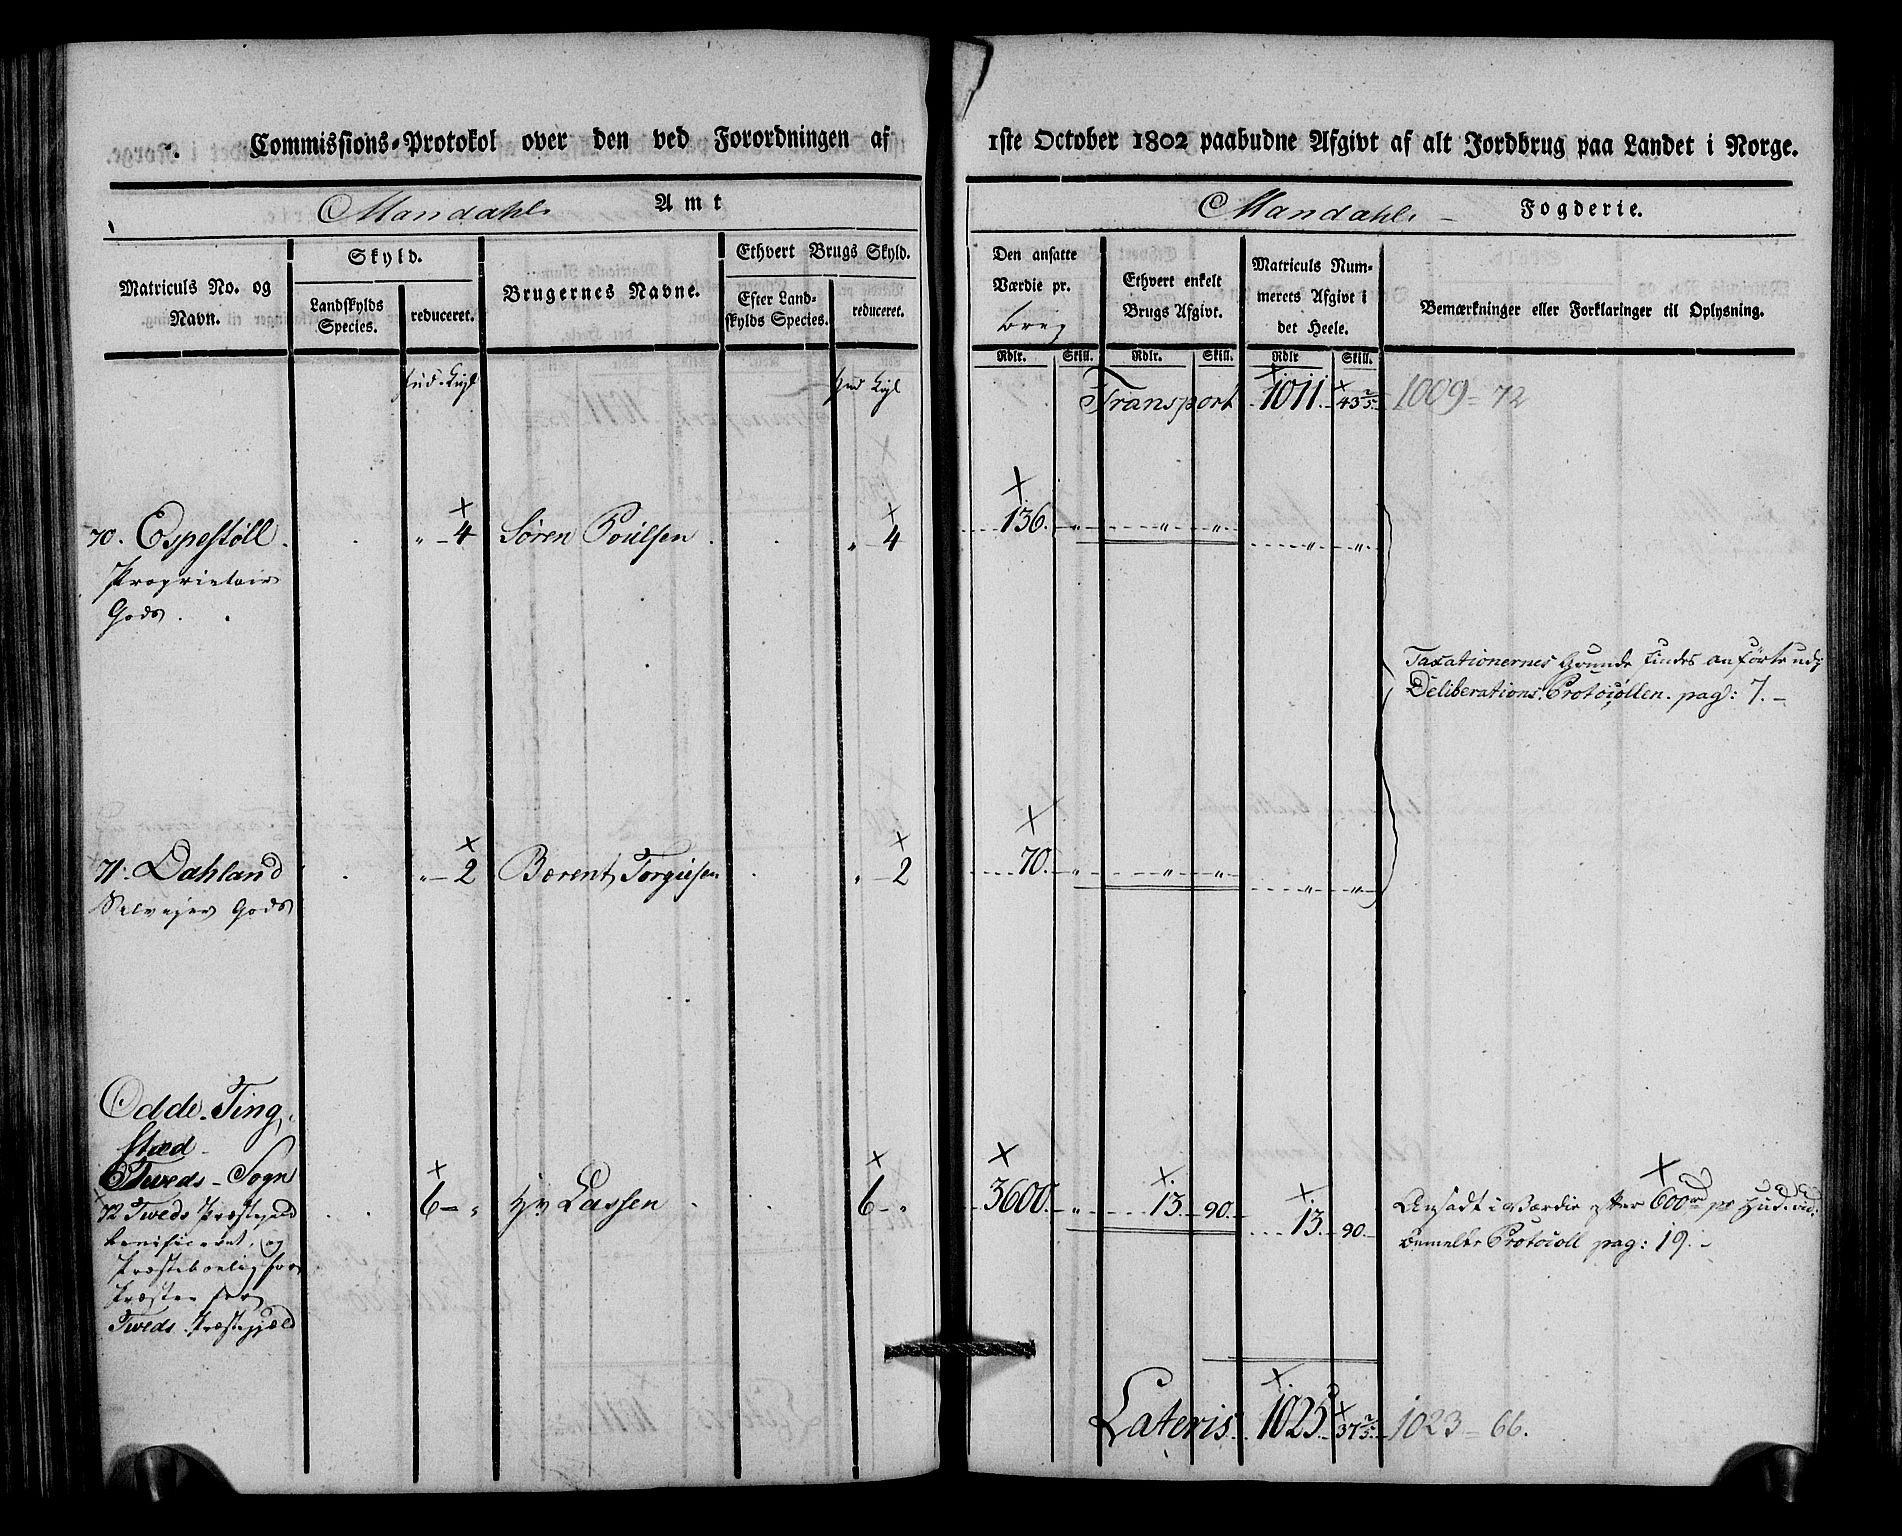 Commissions-Protokol over den ved Forordningen af 1ste October 1802 paabudne Afgivt af alt Jordbrug paa Landet i Norge.
Mandahls Amt
Mandahls Fogderie.
Matriculs No. og Navn.
Skyld.
Landskylds Species.
reduceret.
Brugernes Navne.
Ethvert Brugs Skyld.
Efter Landskylds Species.
reduceret.
Den ansatte Værdie pr. brug
Ethvert enkelt Brugs Afgivt.
Matriculs Nummerets Afgivt i det Heele.
Bemærkninger eller Forklaringer til Oplysning.
Rdlr. Skill. Rdlr. Skill. Rdlr Skill.
Transport 1011. 43 2/5 1009 = 72
70. Espestøll. " 4 Søren Poulsen. " 4 136. " " " " "
Proprietair
Gods.
Taxationernes Grunde findes anførte udj
Deliberations Protocollen. pag: 7. -
71. Dahland " 2 Berent Torgiesen " 2 70. " " " " "
Selvejer Gods
Odde-Ting,
stæd
Tweds-Sogn
72 Tweds Præstegield 6 - " Hr Lassen 6 - " 3600. " 13. 90. 13. 90.
beneficeret, og
Præstebolig for
Præsten for
Tweds Præstegjæld
Ansadt i Værdie efter 600 rd pr Hud. vid.
bemelte Protocoll pag: 19. -
Lateris 1025. 37 2/5 1023 = 66.